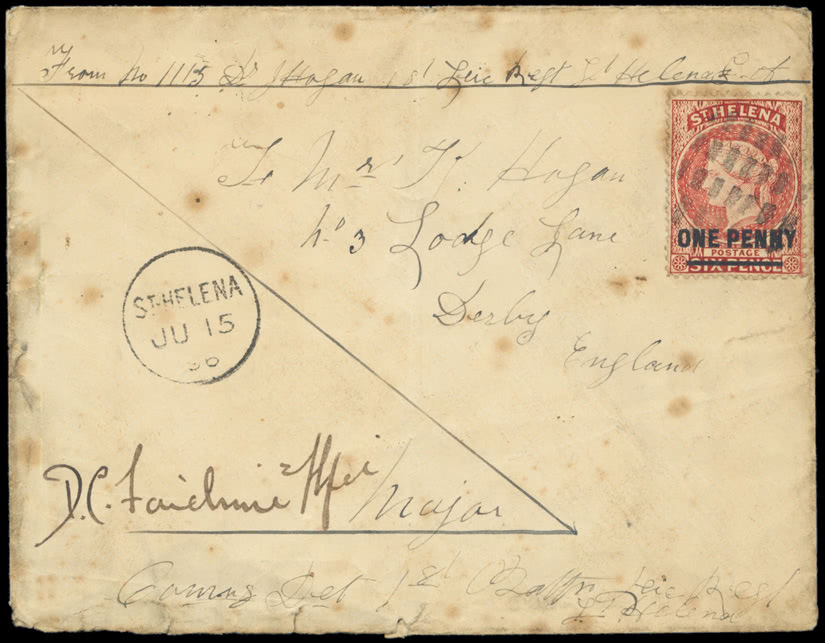 From No 1115 Dr J Hogan 1st Leic Regt St Helena
ST HELENA
ONE PENNY
POSTAGE
SIX PENCE
To Mrs K. Hogan
No 3 Lodge Lane
Derby
England
ST HELENA
JU 15
86
D.C.
Major
Comng Det 1st Battn Leic Regt
St Helena